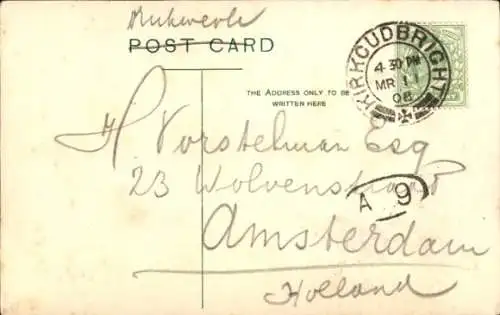 Drukwerk
POST CARD
THE ADDRESS ONLY TO BE
WRITTEN HERE
KIRKCUDBRIGHT
4.30 PM
MR 11
06
H Vorstelman Esq
23 Wolvenstraat
A 9
Amsterdam
Holland